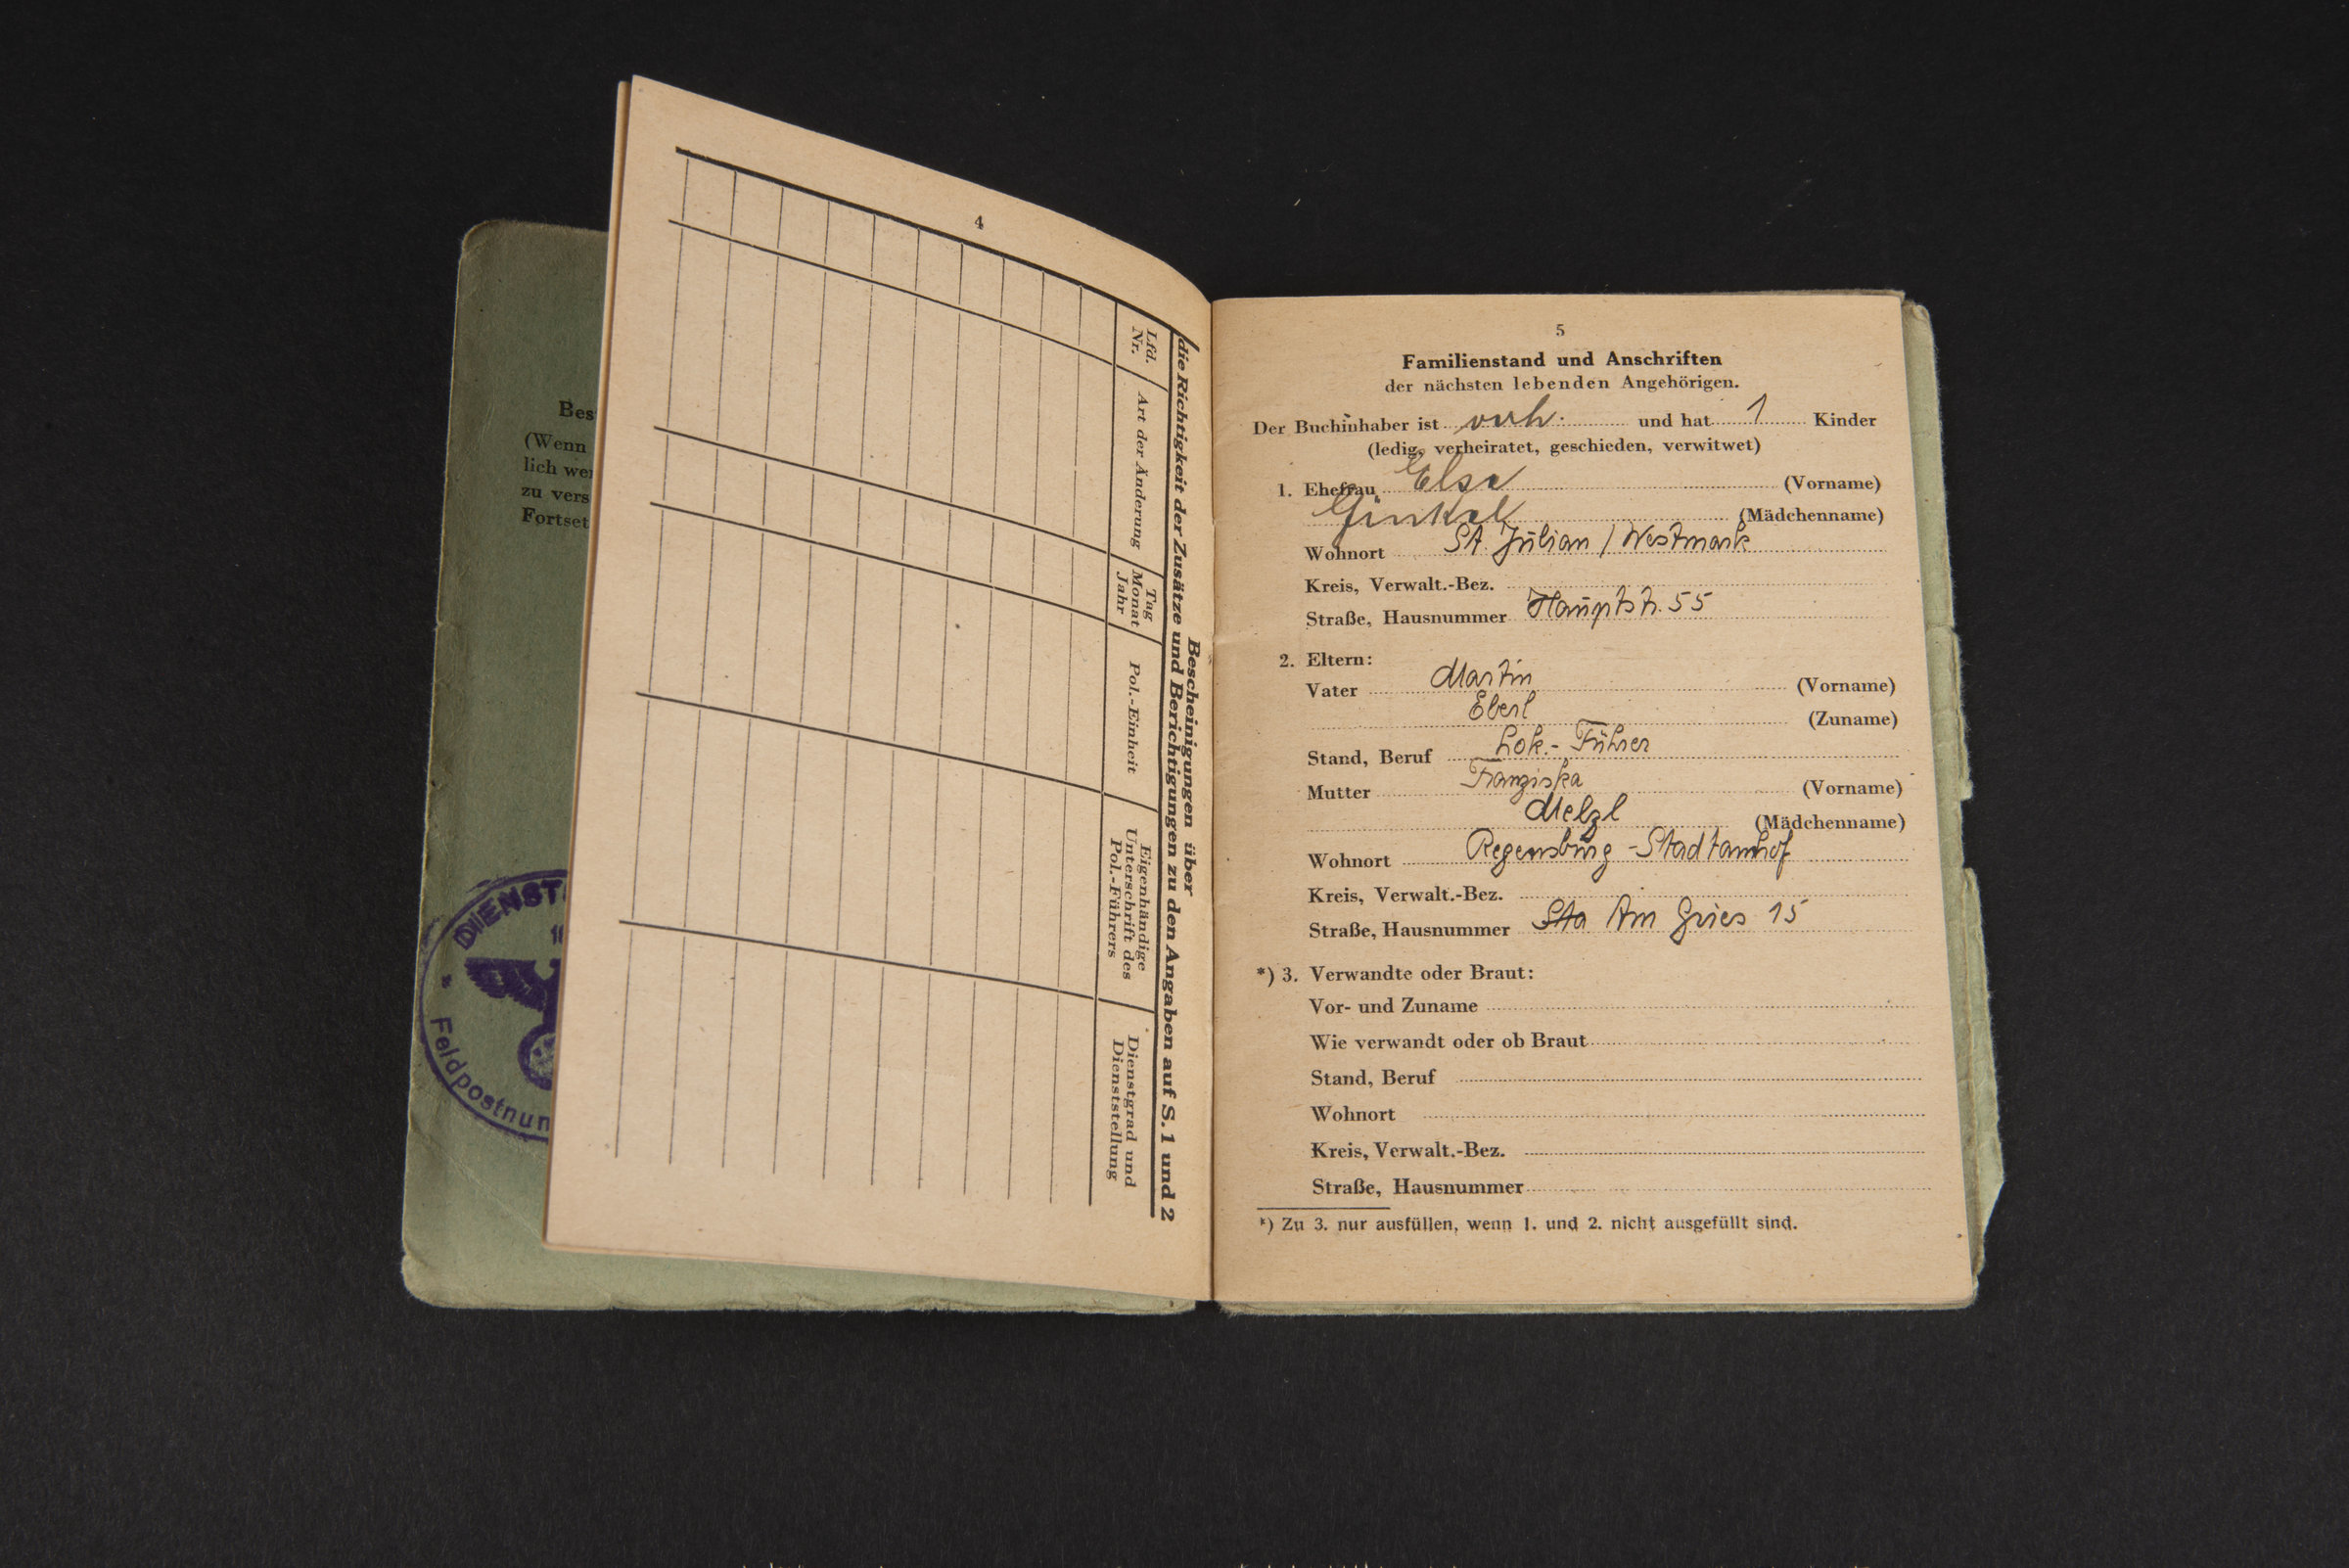 Bes
(Wenn
lich wer
zu vers
Fortset
DIENST
Feldpostnun
4
Bescheinigungen über
die Richtigkeit der Zusätze und Berichtigungen zu den Angaben auf S. 1 und 2
Lfd. Nr.
Art der Änderung
Tag Monat Jahr
Pol.-Einheit
Eigenhändige Unterschrift des Pol.-Führers
Dienstgrad und Dienststellung
5
Familienstand und Anschriften
der nächsten lebenden Angehörigen.
Der Buchinhaber ist verh. und hat 1 Kinder
(ledig, verheiratet, geschieden, verwitwet)
1. Ehefrau Else (Vorname)
Ginkel (Mädchenname)
Wohnort St. Julian / Westmark
Kreis, Verwalt.-Bez.
Straße, Hausnummer Hauptstr. 55
2. Eltern:
Vater Martin (Vorname)
Eberl (Zuname)
Stand, Beruf Lok.-Führer
Mutter Franziska (Vorname)
Melzl (Mädchenname)
Wohnort Regensburg-Stadtamhof
Kreis, Verwalt.-Bez.
Straße, Hausnummer Sta Am Gries 15
*) 3. Verwandte oder Braut:
Vor- und Zuname
Wie verwandt oder ob Braut
Stand, Beruf
Wohnort
Kreis, Verwalt.-Bez.
Straße, Hausnummer
*) Zu 3. nur ausfüllen, wenn 1. und 2. nicht ausgefüllt sind.